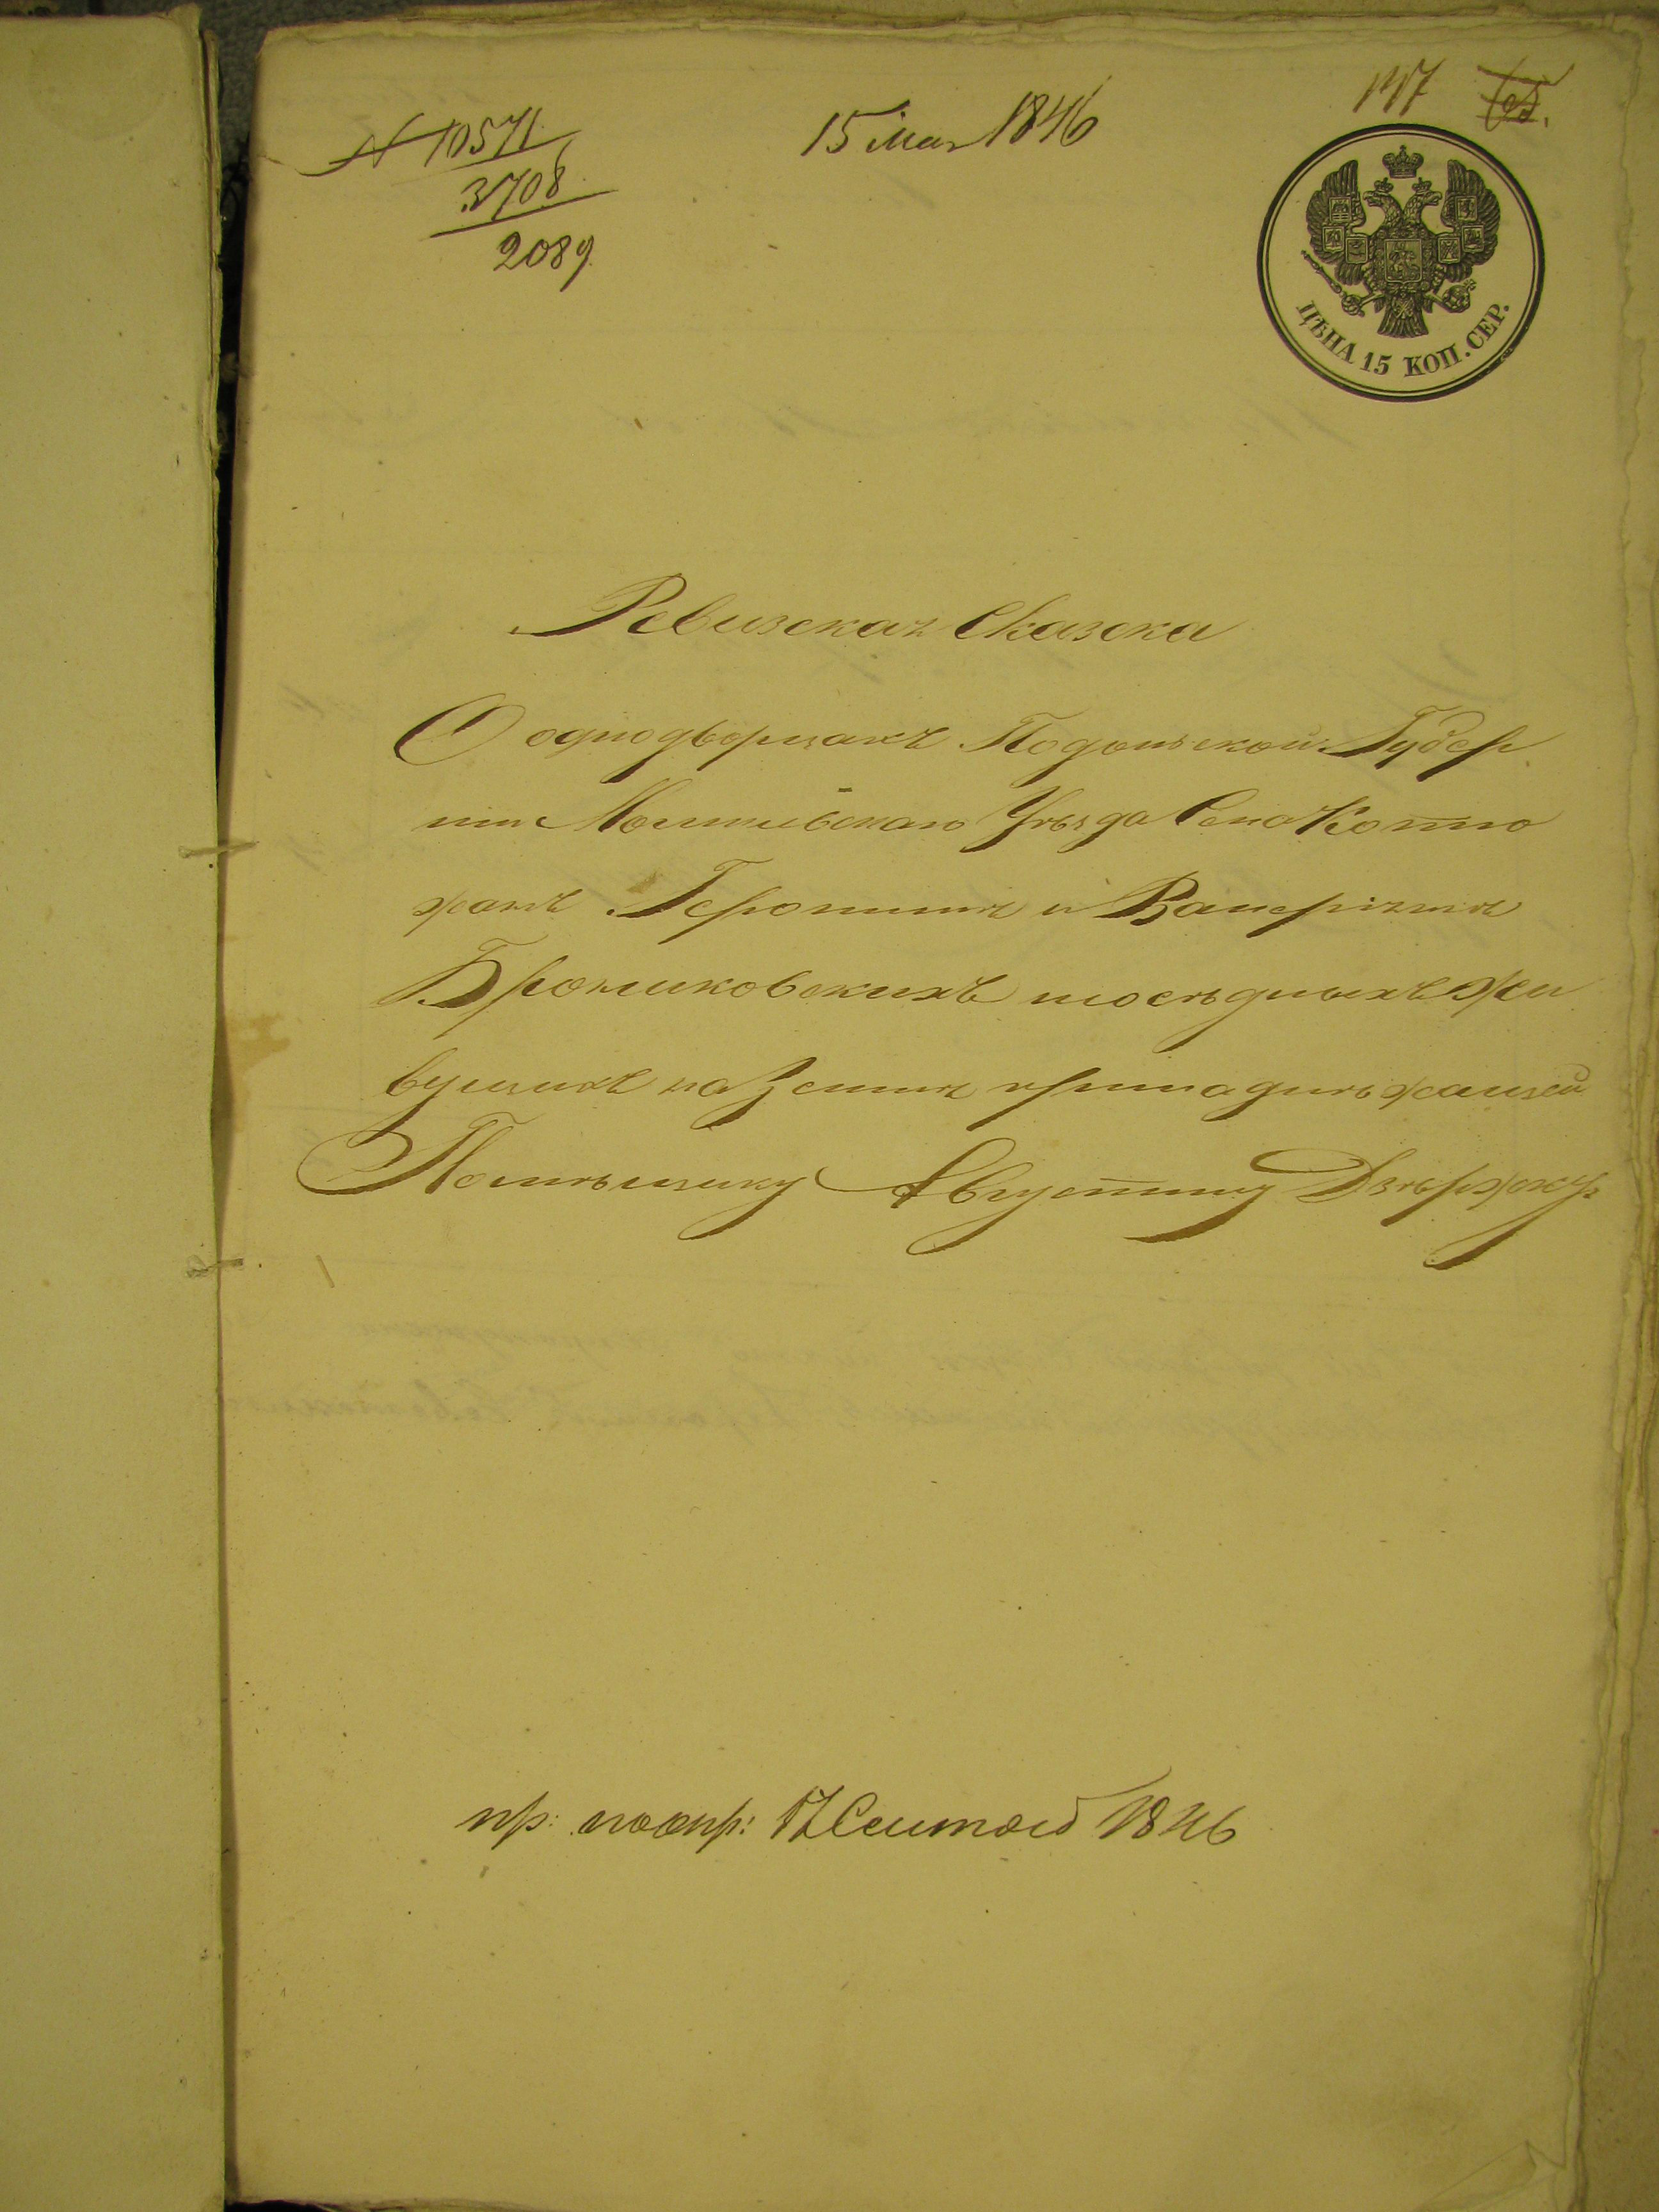 № 10571
3708
2089
15 мая 1846
147 65.
ЦѢНА 15 КОП. СЕР.
Ревизская Сказска
О однодворцахъ Подольской Губер
ніи Могилевскаго Уѣзда Села Котю
жанъ Геронимѣ и Валеріянѣ
Брониковскихъ иосѣдныхъ жи
вущихъ на Земли принадлежащей
Помѣщику Августину Дзѣржку
пр: 17 Сентяб 1846